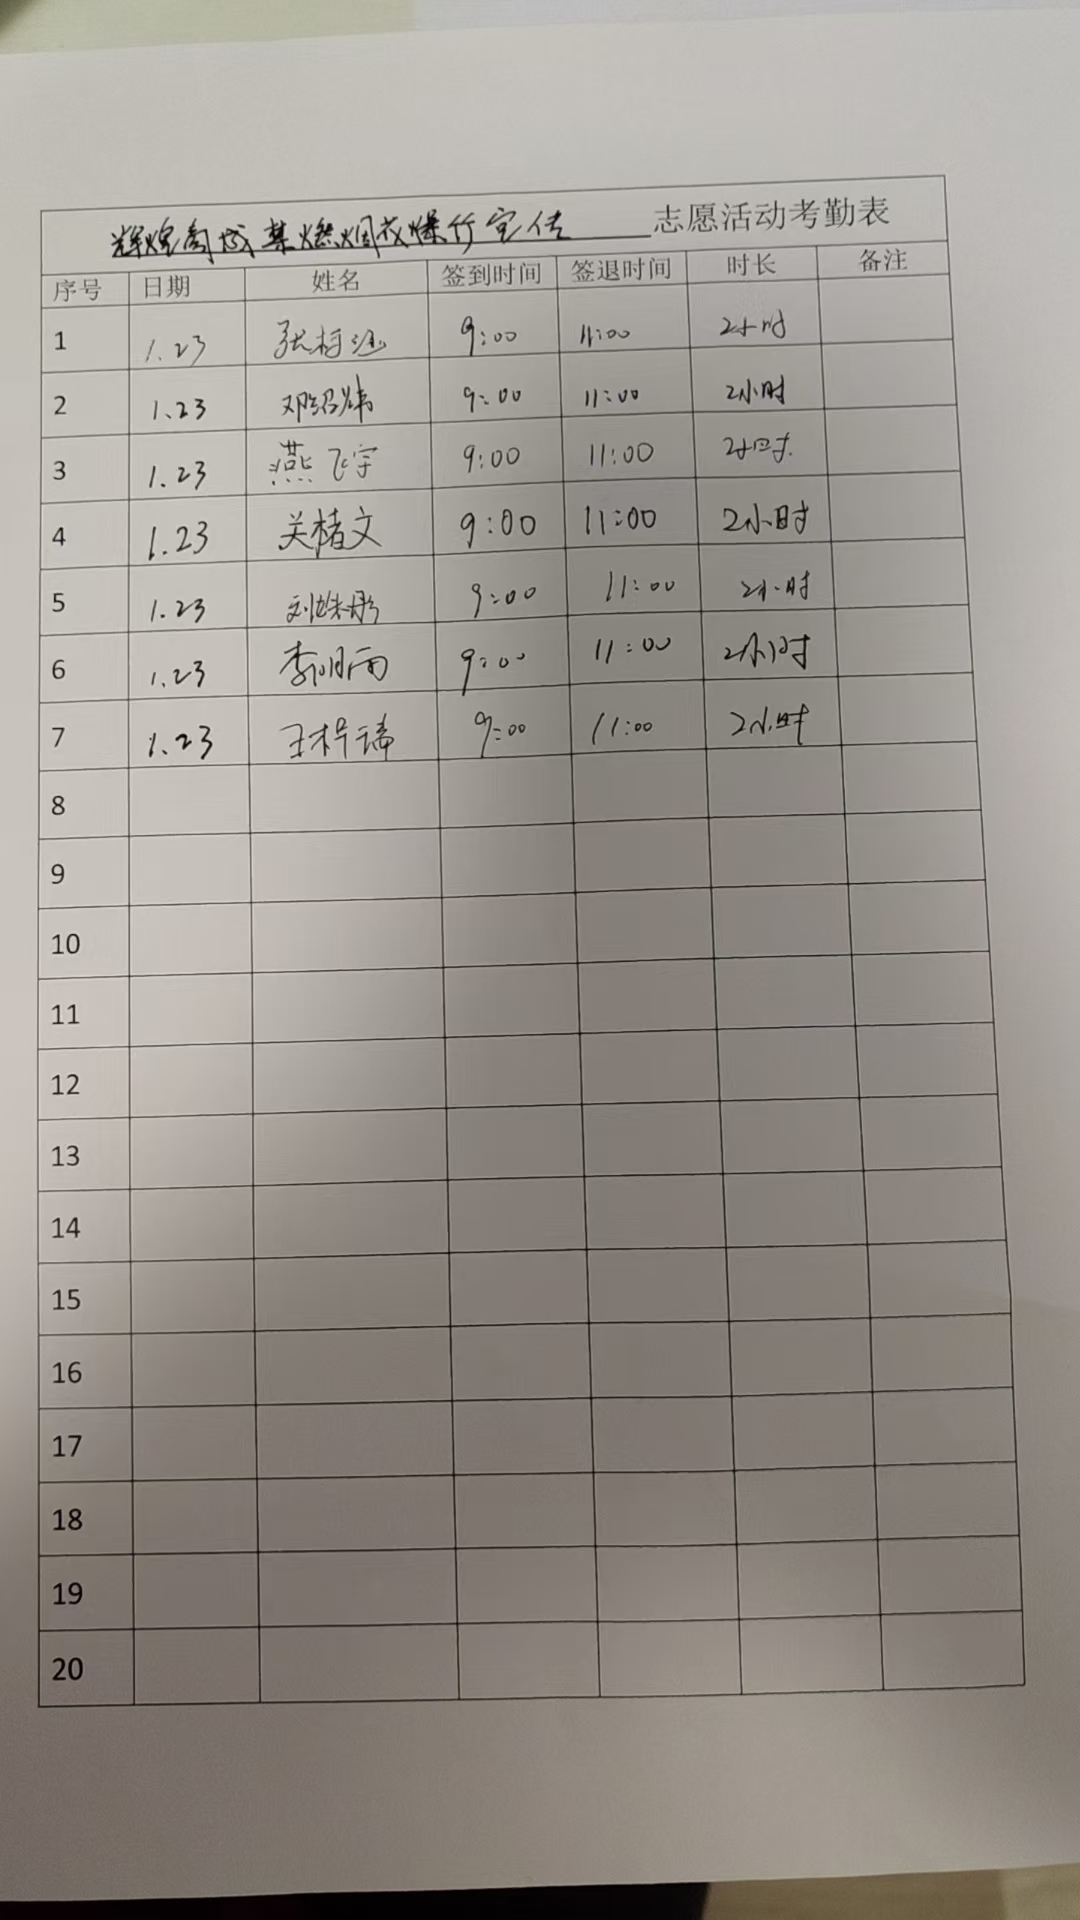 辉煌商城禁燃烟花爆竹宣传 志愿活动考勤表
序号 日期 姓名 签到时间 签退时间 时长 备注
1 1.23 9:00 11:00 2小时
2 1.23 邓绍炜 9:00 11:00 2小时
3 1.23 燕飞宇 9:00 11:00 2小时
4 1.23 关楮文 9:00 11:00 2小时
5 1.23 刘姝彤 9:00 11:00 2小时
6 1.23 李明雨 9:00 11:00 2小时
7 1.23 王梓谛 9:00 11:00 2小时
8
9
10
11
12
13
14
15
16
17
18
19
20